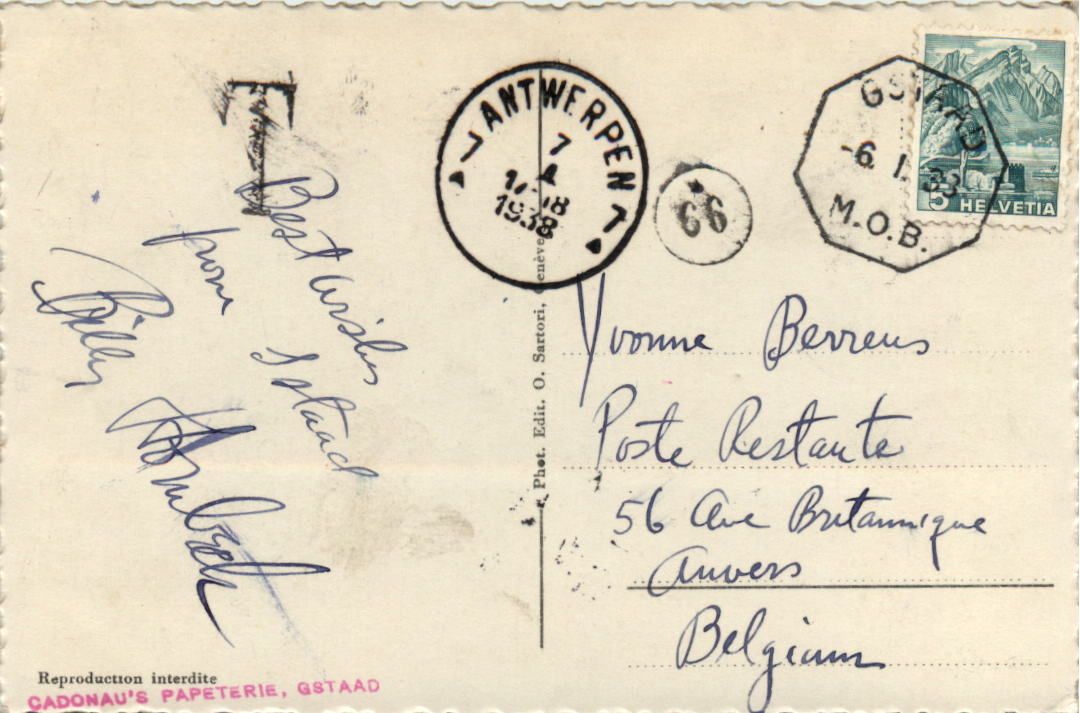 T
Best wishes
from Gstaad
Billy
ANTWERPEN
7
1
17-18
1938
1 1
66
GSTAAD
-6. I. 38
M.O.B.
5 HELVETIA
Phot. Edit. O. Sartori, Genève
Yvonne Berrens
Poste Restante
56 Ave Britannique
Anvers
Belgium
Reproduction interdite
CADONAU'S PAPETERIE, GSTAAD